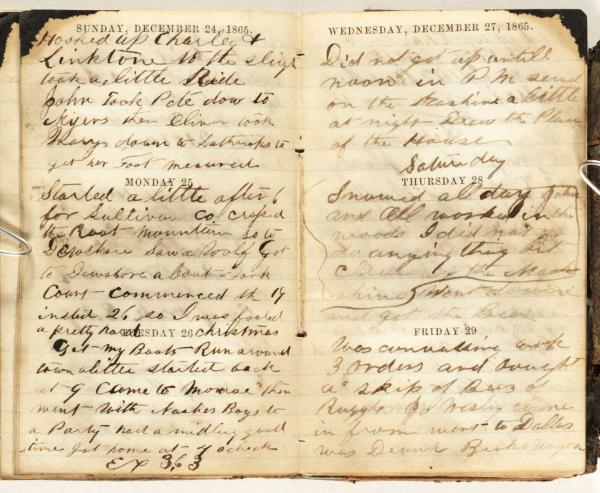 SUNDAY, DECEMBER 24, 1865.
Hooked up Charley &
Linktone to the sligh
took a little Ride
John Took Pete dow to
Myers then Oliver took
Mary down to to
get her Foot measured
MONDAY 25
Started a little after 6
for Sullivan Co. crosed
the Mountain so to
Dewshore Saw a Woolf Got
to Dewshore about Dark
Court commenced th 19
insted 26 so I was fooled
a pretty hard Christmas
TUESDAY 26
Get my Boots Run around
town alittle started back
at 9 Came to Monroe then
went with Nashes Boys to
a Party had a midling good
time got home at 7 oclock
EX 3,63
WEDNESDAY, DECEMBER 27, 1865.
Did not get up untill
noon in P.M. send
on the Mashine a little
at night Drew the Plan
of the House
Saturday
THURSDAY 28
Snowed all day John
and Oll worked in the
woods I did not
do anything but
the Mash
shine Went down
and got the
FRIDAY 29
Was canvassing took
3 orders and bought
a skip of Bees of
Ruggles Wesley come
in from went to Dallas
was Drunk Broke Wagon